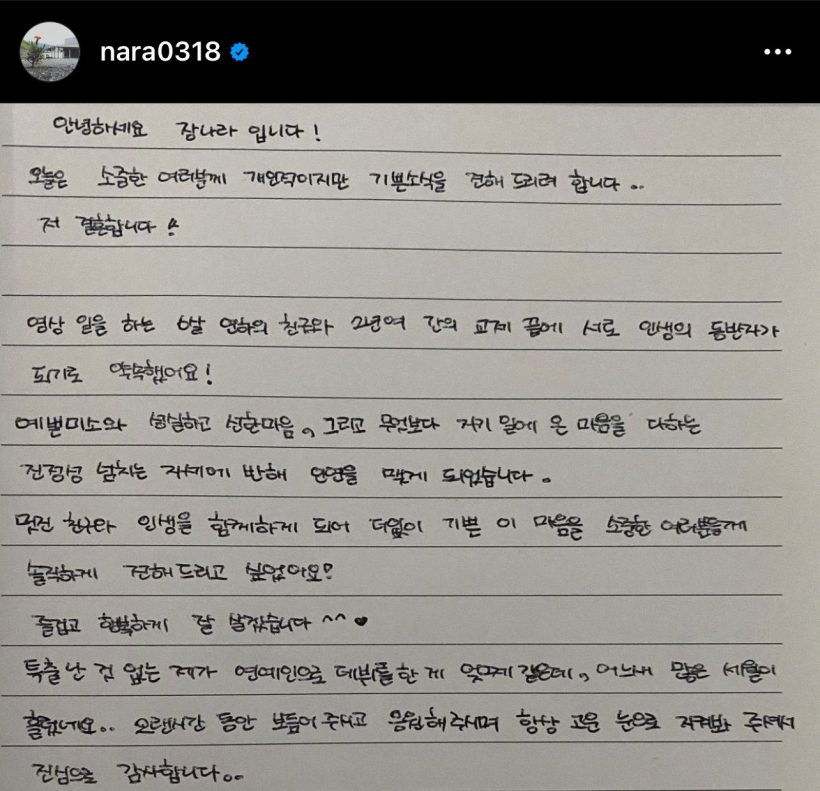 nara0318
안녕하세요 장나라 입니다!
오늘은 소중한 여러분께 개인적이지만 기쁜소식을 전해 드리려 합니다..
저 결혼합니다!
영상 일을 하는 6살 연하의 친구와 2년여 간의 교제 끝에 서로 인생의 동반자가
되기로 약속했어요!
예쁜미소와 성실하고 선한마음, 그리고 무엇보다 자기 일에 온 마음을 다하는
진정성 넘치는 자세에 반해 인연을 맺게 되었습니다.
멋진 친구와 인생을 함께하게 되어 더없이 기쁜 이 마음을 소중한 여러분들께
솔직하게 전해드리고 싶었어요!
즐겁고 행복하게 잘 살겠습니다^^♥
특출난 것 없는 제가 연예인으로 데뷔를한 게 엊그제 같은데, 어느새 많은 세월이
흘렀네요.. 오랜시간 동안 보듬어 주시고 응원해주시며 항상 고운 눈으로 지켜봐 주셔서
진심으로 감사합니다..